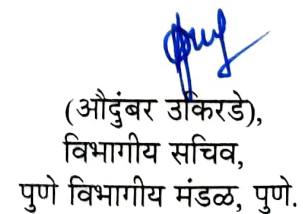 (औदुंबर उकिरडे),
विभागीय सचिव,
पुणे विभागीय मंडळ, पुणे.